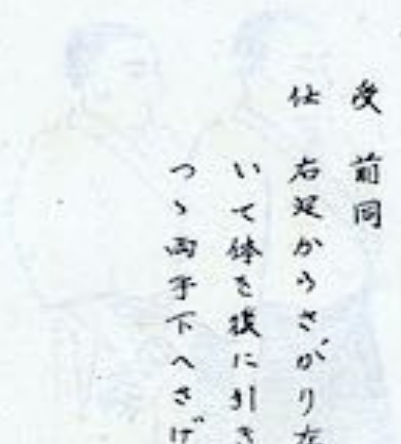 受 前同
仕 右足からさがり左
いて体を後に引き
つゝ両手下へさげ